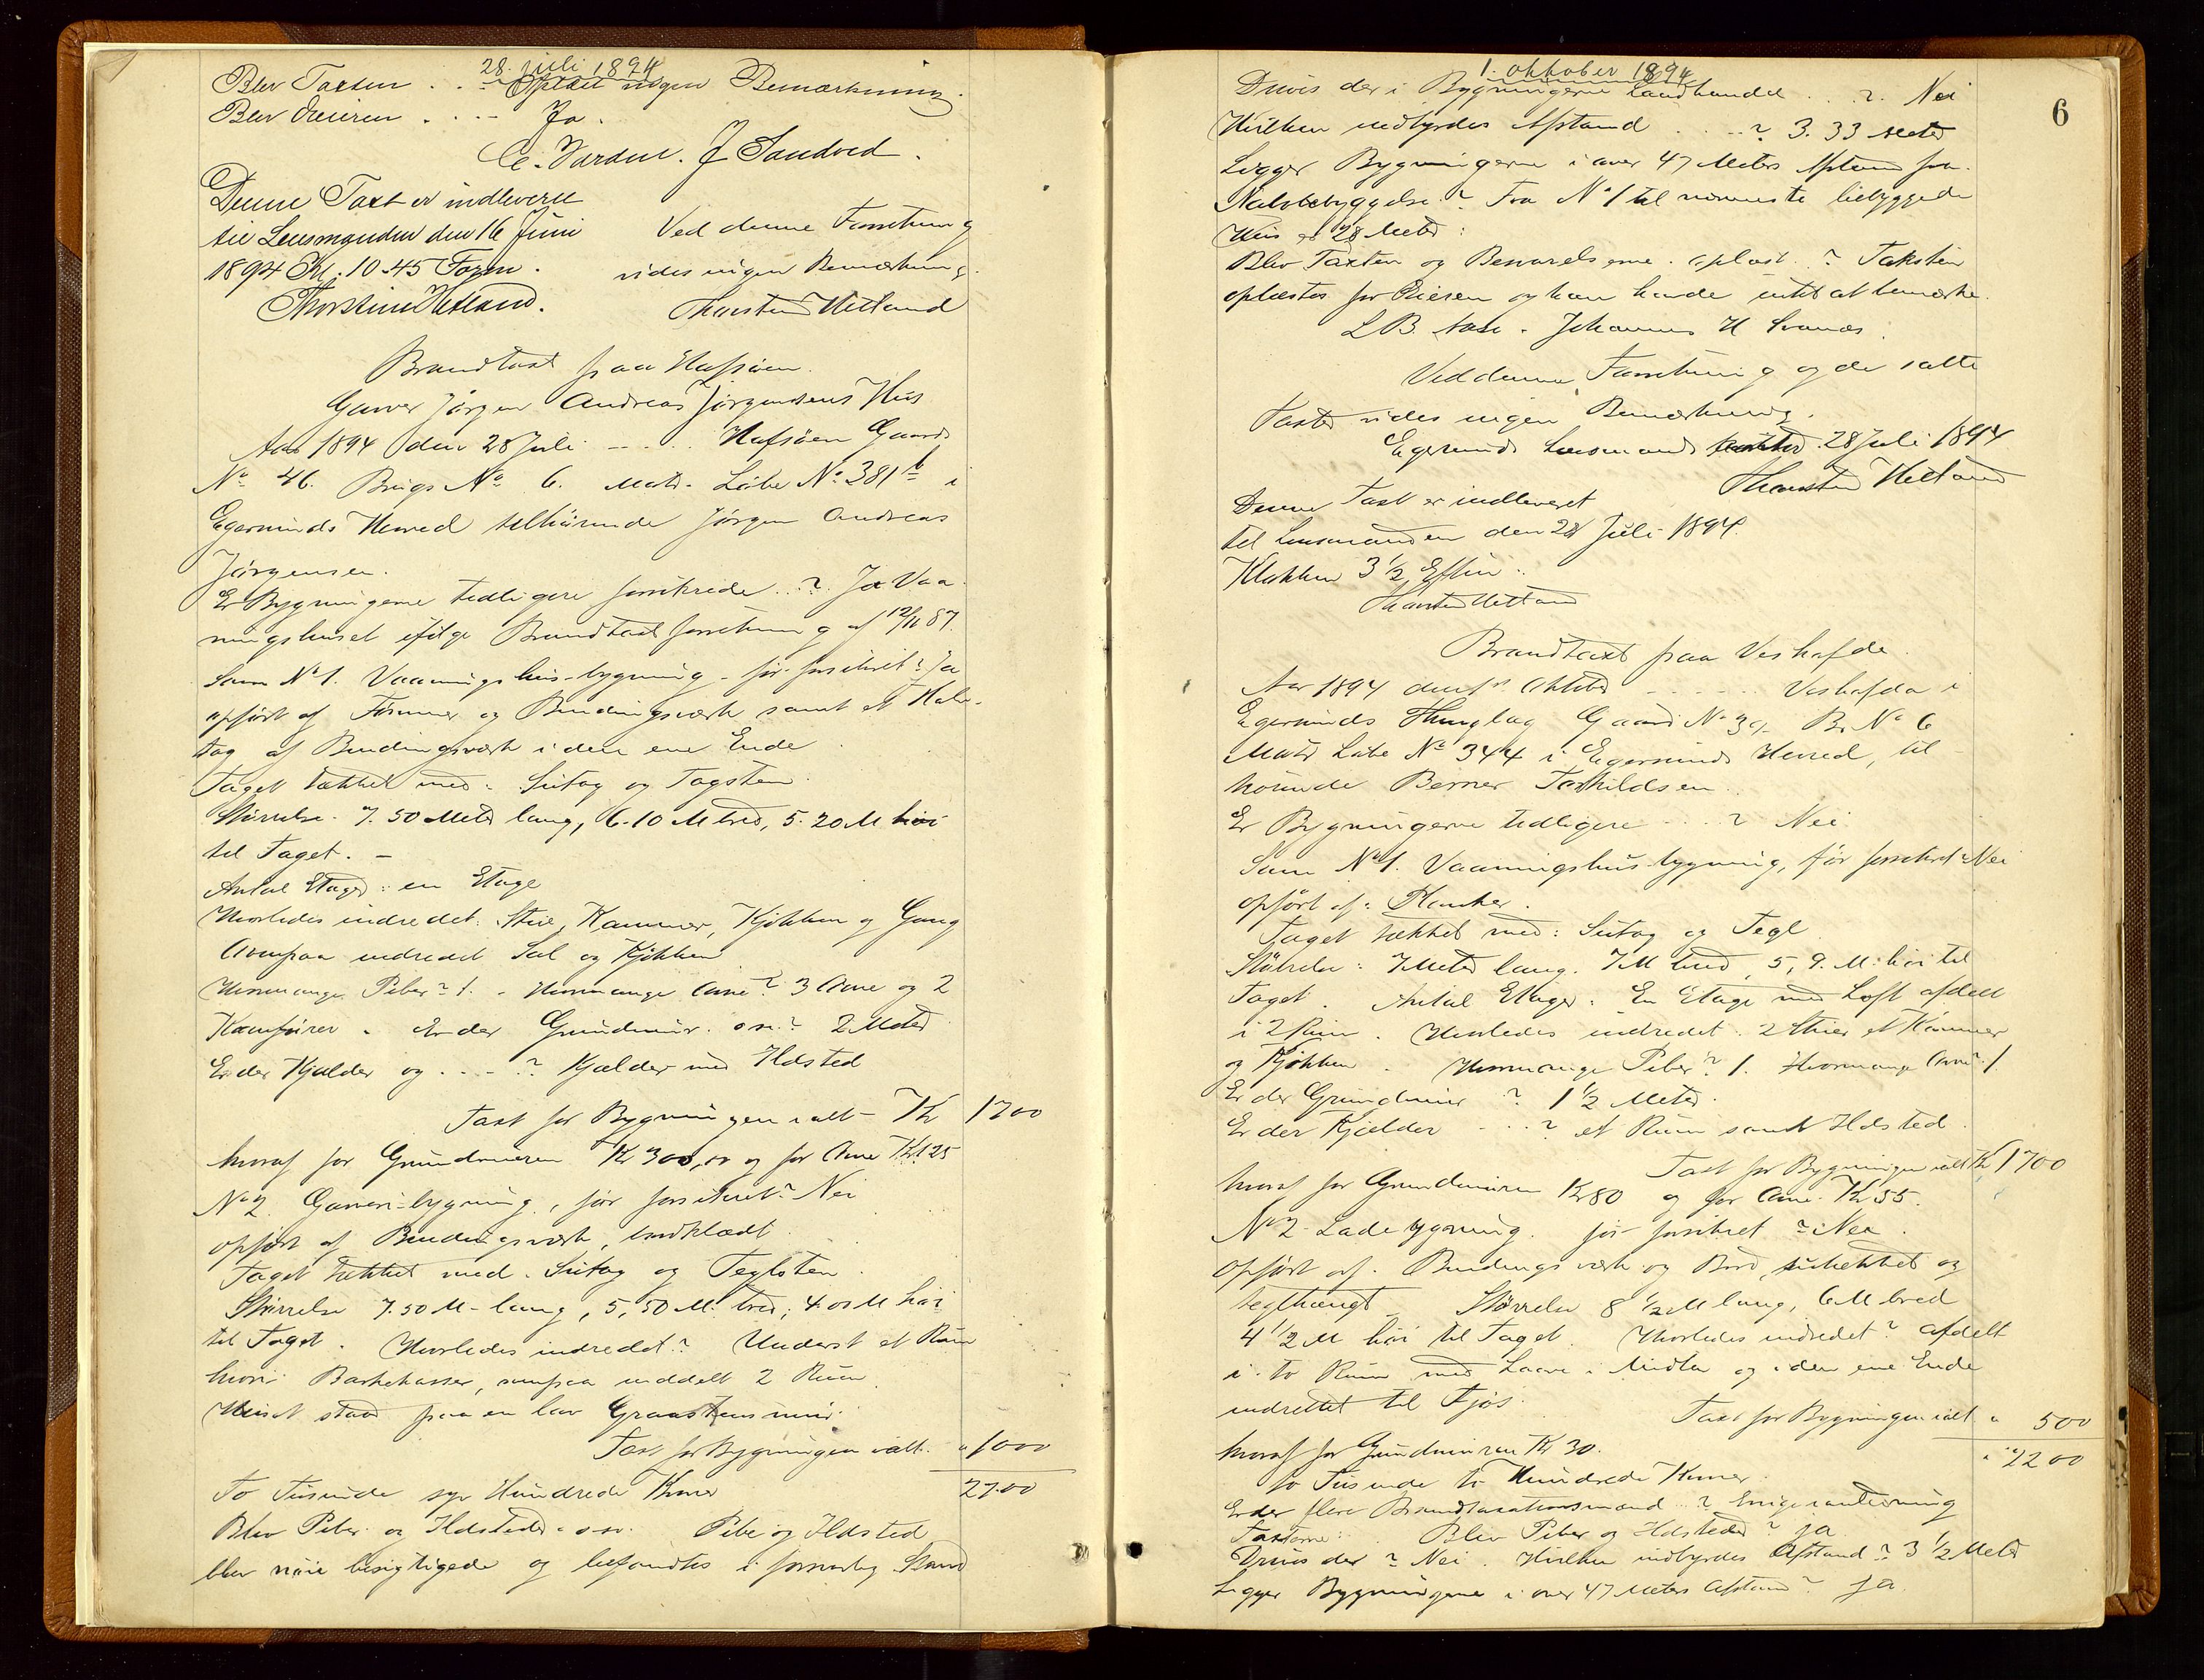 28. juli 1894
Blev Taxten . . - Oplæst ingen Bemærkning.
Blev Eieren . . - Ja.
C. Varden. J Sandved.
Denne Taxt er indleveret
til Lensmanden den 16 Juni
1894 Kl: 10.45 Form.
Thorstein Hetland.
Ved denne Forretning
vides ingen Bemærkning.
Thorsten Hetland
Brandtaxt paa Hafsöen.
Garver Jörgen Andreas Jörgensens Hus
Aar 1894 den 28 Juli - - . . . Hafsöen Gaards
No 46. Brugs No 6. Matr. Löbe No 381 b i
Egersunds Herred tilhörende Jörgen Andreas
Jörgensen.
Er Bygningerne tidligere forsikrede . . ? Ja Vaa-
ningshuset ifölge Brandtaxtforretning af 12/11 87.
Som No 1. Vaaningshus-bygning - för forsikret? Ja
opført af Tömmer og Bindingsværk samt et Halv-
tag af Bindingsværk i den ene Ende
Taget tækket med: Sutag og Tagsten.
Störrelse. 7.50 Meter lang, 6.10 M bred, 5.20 M höi
til Taget. -
Antal Etager: en Etage
Hvorledes indredet: Stue, Kammer, Kjökken og Gang
Ovenpaa indredet Sal og Kjökken
Hvormange Piber? 1. - Hvormange Ovne? 3 Ovne og 2
Komfurer. Er der Grundmur. o s v? 2 Meter
Er der Kjælder og . . - ? Kjælder med Ildsted
Taxt for Bygningen i alt - Kr 1700
hvoraf for Grundmuren Kr 300,00 og for Ovne Kr 125
No 2. Garveri-bygning, för forsikret? Nei
opfört af Bindingsværk, bordklædt.
Taget tækket med. Sutag og Teglsten.
Störrelse 7.50 M - lang, 5,50 M: bred; 4.00 M höi
til Taget. Hvorledes indredet? Underst et Rum
hvori Barkekasser, ovenpaa inddelt 2 Rum
Huset staar paa en lav Graastensmur.
Taxt for Bygningen ialt. " 1000
2700
To Tusinde syv Hundrede Kroner
Blev Piber og Ildsteder o s v. Pibe og Ildsted
blev nöie besigtigede og befandtes i forsvarlig Stand
1. oktober 1894
6
Drives der i Bygningerne Landhandel . . ? Nei
Hvilken indbyrdes Afstand . . . - ? 3.33 Meter
Ligger Bygningerne i over 47 Meters Afstand fra
Nabobebyggelse? Fra No 1 til nærmeste bebyggede
Hus er 28 Meter:
Blev Taxten og Besvarelserne oplæst . ? Taksten
oplæstes for Eieren og han havde intet at bemærke.
L B Aase. Johannes H Svanes.
Ved denne Forretning og de satte
Taxter vides ingen Bemærkning.
Egersunds Lensmands 28 Juli 1894
Thorsten Hetland
Denne Taxt er indleveret
til Lensmanden den 28 Juli 1894.
Klokken 3 1/2 Efterm.
Thorsten Hetland
Brandtaxt paa Veshafde.
Aar 1894 den 1st Oktober - - . . . Veshafda i
Egersunds Thinglag Gaards No 39 Br. No 6
Matr Löbe No 344 i Egersunds Herred, til-
hörende Berner Torkildsen.
Er Bygningerne tidligere - - . ? Nei
Som No 1. Vaaningshus-bygning, för forsikret? Nei
opfört af: Planker.
Taget tækket med: Sutag og Tegl
Störrelse: 7 Meter lang. 7 M bred, 5,9. M: höi til
Taget. Antal Etager: En Etage med Loft afdelt
i 2 Rum. Hvorledes indredet: 2 Stuer et Kammer
og Kjökken. Hvormange Piber? 1. Hvormange Ovne? 1
Er der Grundmur ? 1 1/2 Meter.
Er der Kjælder . . . ? et Rum samt Ildsted.
Taxt for Bygningen ialt Kr 1700
hvoraf for Grundmuren Kr 80 og for Ovne Kr 55.
No 2 - Ladebygning. för forsikret? Nei.
Opfört af. Bindingsværk og Bord, sutækket og
teglhængt. Störrelse 8 1/2 M lang, 6 M bred
4 1/2 M höi til Taget. Hvorledes indredet? afdelt
i to Rum med Laave i Midten og i den ene Ende
indrettet til Fjös.
Taxt for Bygningen ialt " 500
hvoraf for Grundmuren Kr 30.
" 2200
to Tusinde to Hundrede Kroner.
Er der flere Brandtaxationsmænd ? Enige
Taxterne: Blev Piber og Ildsteder? ja
Drives der ? Nei. Hvilken indbyrdes Afstand? 3 1/2 Meter
Ligger Bygningerne i over 47 Meters Afstand? ja